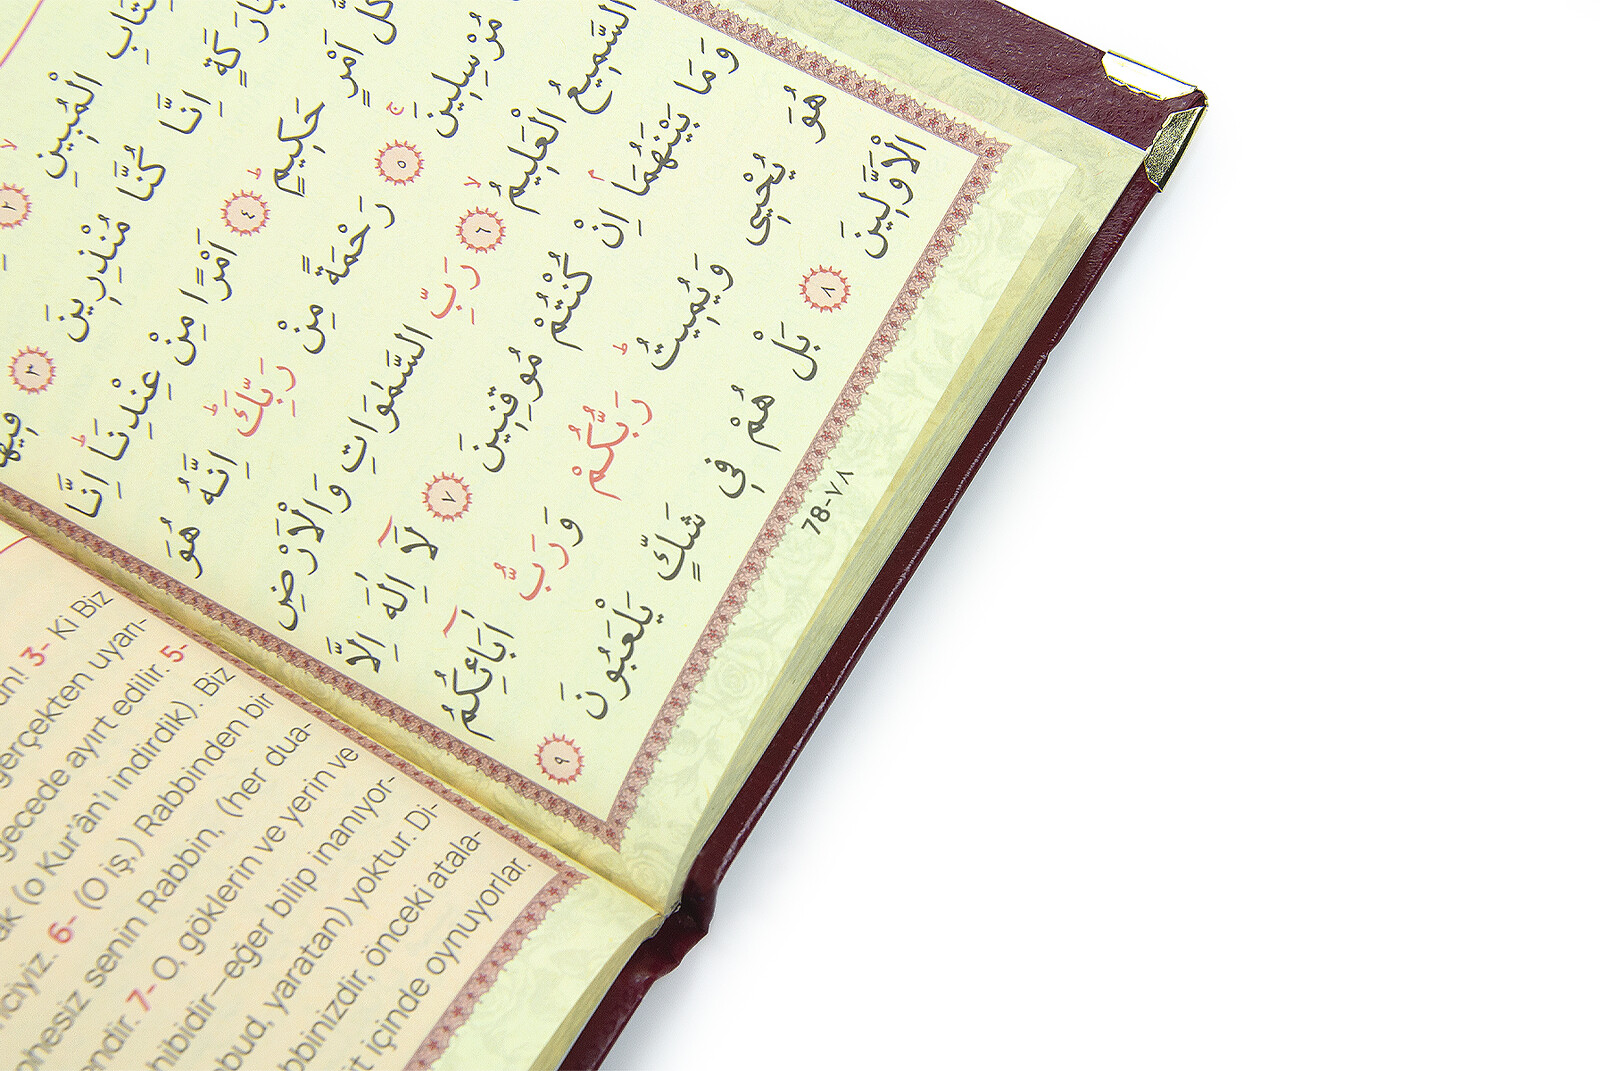 الْمُبِينِ ٢
اِنَّا كُنَّا مُنْذِرِينَ ٣ فِيهَا
كُلُّ اَمْرٍ حَكِيمٍۜ ٤ اَمْرًا مِنْ عِنْدِنَاۜ اِنَّا
مُرْسِلِينَۚ ٥ رَحْمَةً مِنْ رَبِّكَۜ اِنَّهُ هُوَ
السَّمِيعُ الْعَلِيمُۙ ٦ رَبِّ السَّمٰوَاتِ وَالْاَرْضِ
وَمَا بَيْنَهُمَاۢ اِنْ كُنْتُمْ مُوقِنِينَ ٧ لَٓا اِلٰهَ اِلَّا
هُوَ يُحْيِي وَيُمِيتُۜ رَبُّكُمْ وَرَبُّ اٰبَٓائِكُمُ
الْاَوَّلِينَ ٨ بَلْ هُمْ فِي شَكٍّ يَلْعَبُونَ ٩
78-٧٨
un! 3- Ki Biz
gerçekten uyarı-
gecede ayırt edilir. 5-
ak (o Kur'ân'ı indirdik). Biz
nciyiz. 6- (O iş,) Rabbinden bir
phesiz senin Rabbin, (her dua-
endir. 7- O, göklerin ve yerin ve
hibidir—eğer bilip inanıyor-
bud, yaratan) yoktur. Di-
bbinizdir, önceki atala-
içinde oynuyorlar.